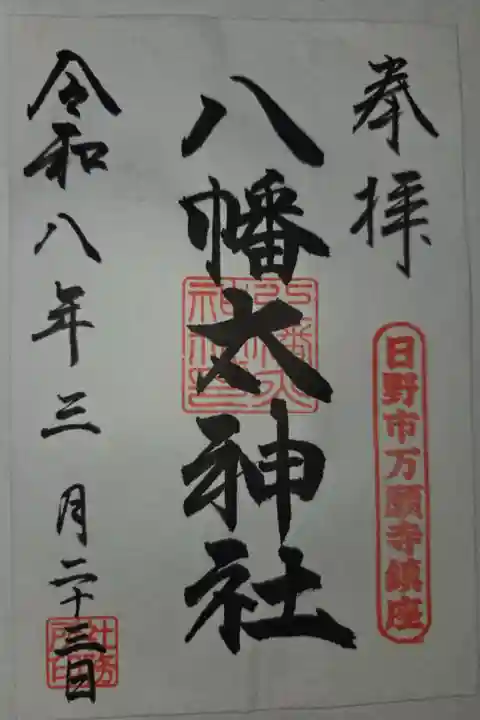 奉拝
日野市万願寺鎮座
八幡大神社
令和八年三月二十三日
社務所印